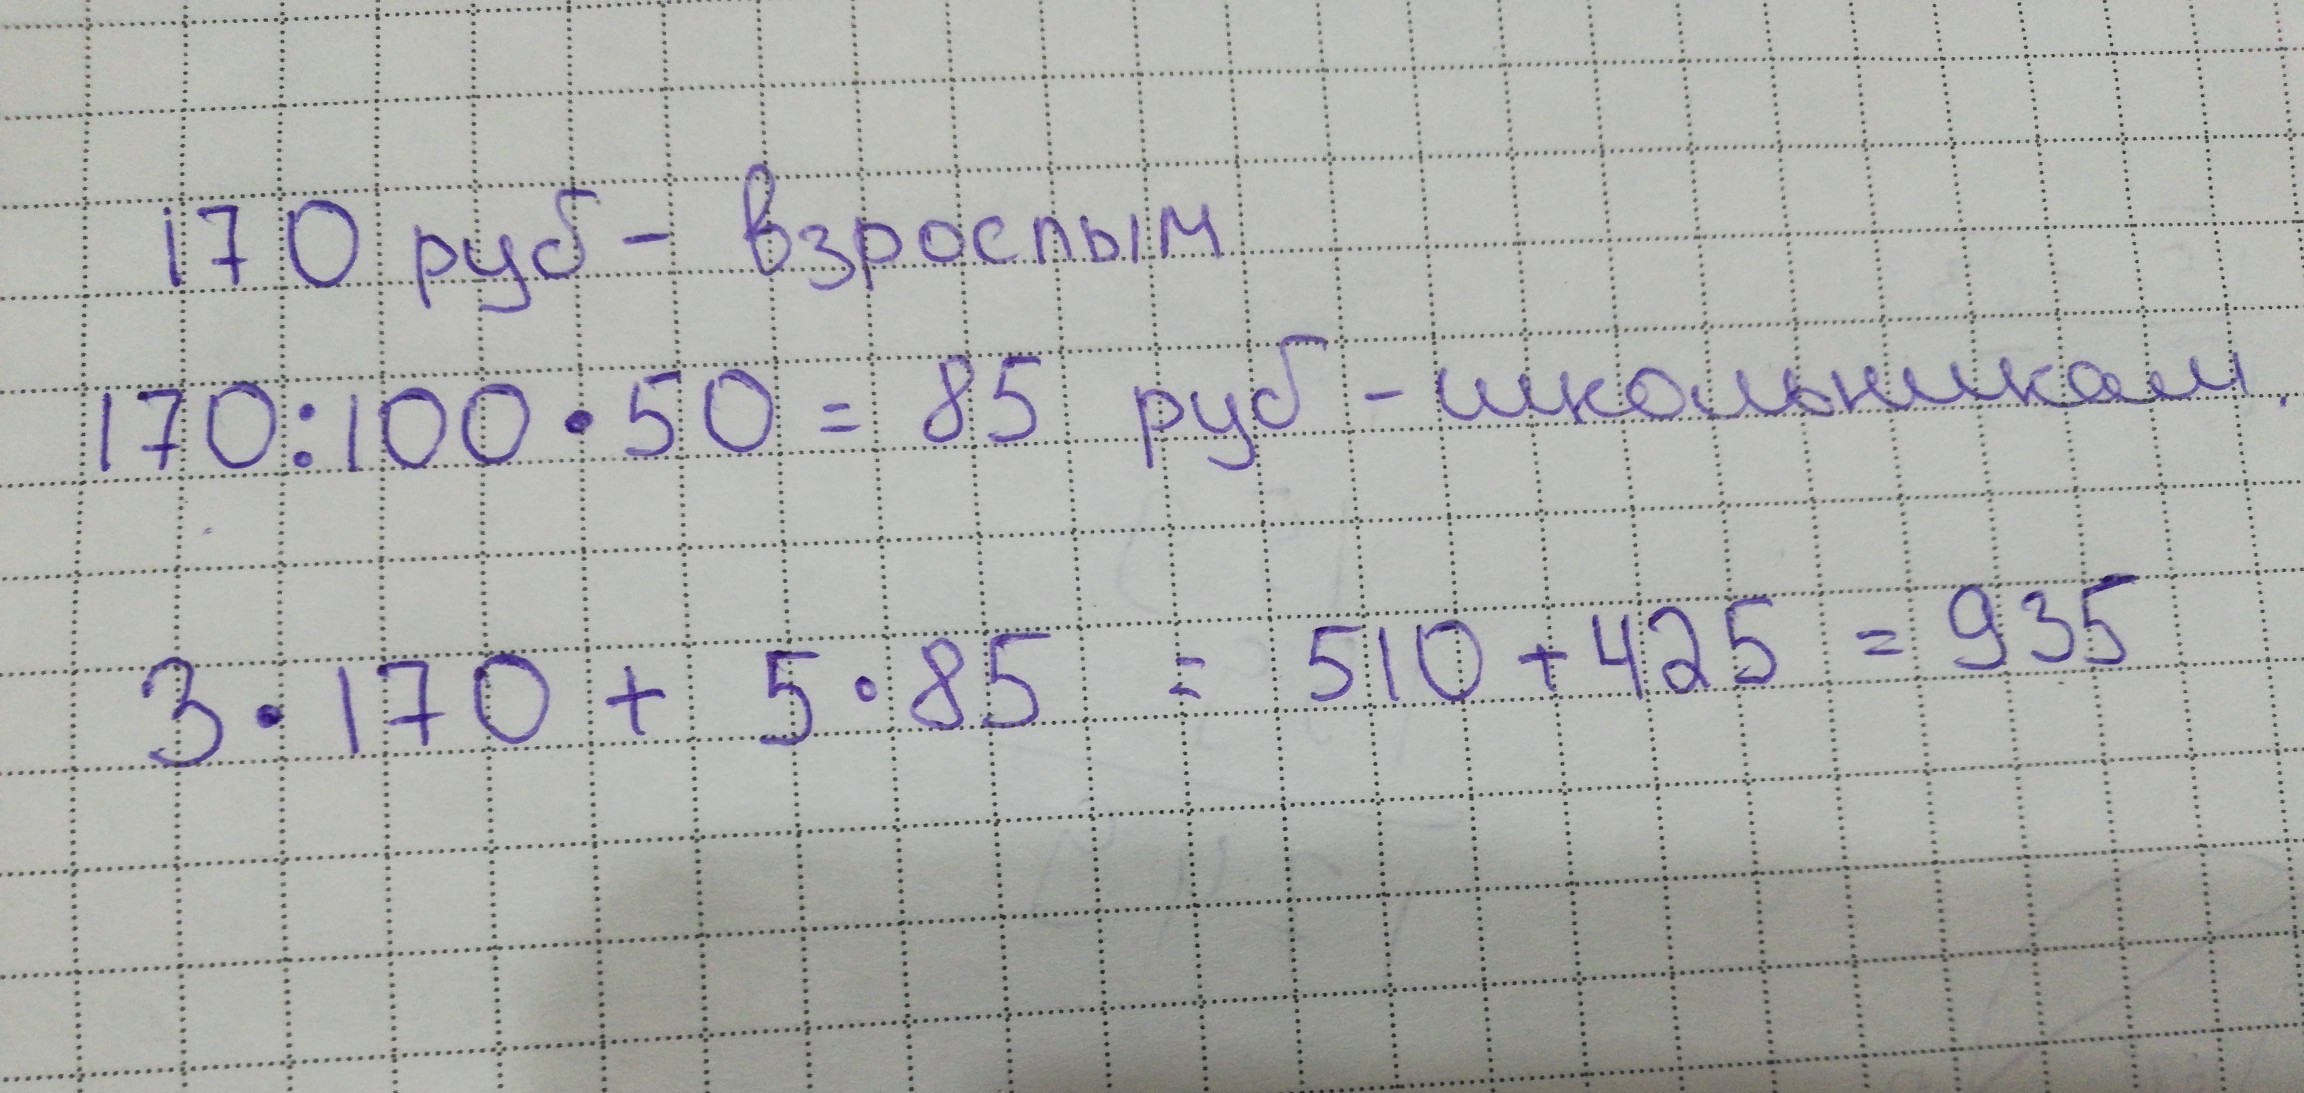 170 руб - взрослым
170:100•50 = 85 руб - школьникам.
3•170 + 5•85 = 510 + 425 = 935